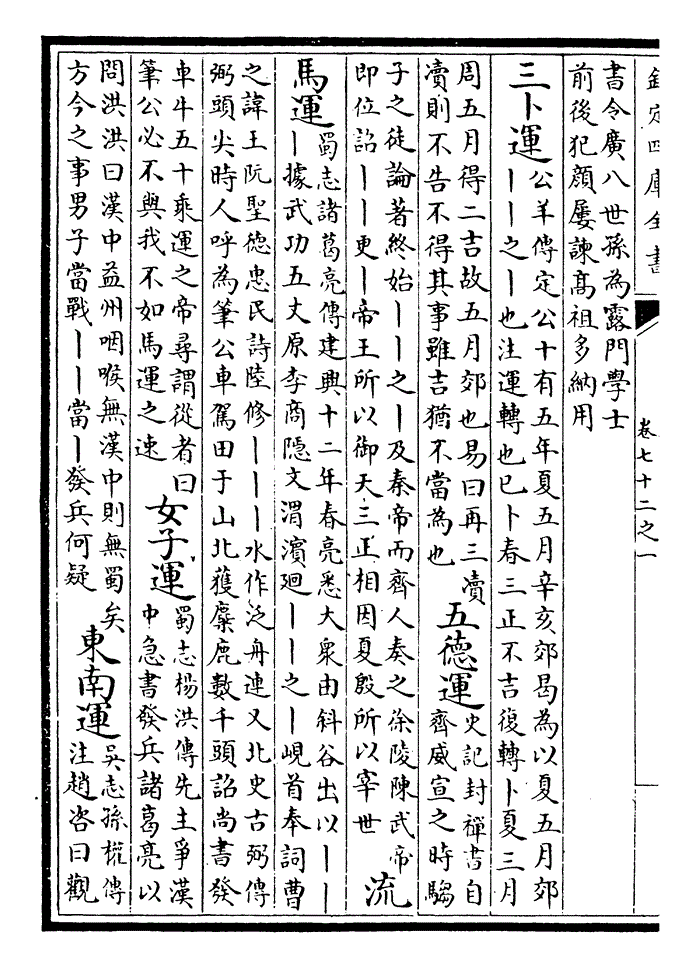 欽定四庫全書
卷七十二之一
書令廣八世孫為露門學士
前後犯顔屢諫髙祖多納用
三卜運
公羊傳定公十有五年夏五月辛亥郊曷為以夏五月郊
丨丨之丨也注運轉也已卜春三正不吉復轉卜夏三月
周五月得二吉故五月郊也易曰再三瀆
瀆則不告不得其事雖吉猶不當為也
五德運
史記封禪書自
齊威宣之時騶
子之徒論著終始丨丨之丨及秦帝而齊人奏之徐陵陳武帝
即位詔丨丨更丨帝王所以御天三正相因夏殷所以宰世
流
馬運
蜀志諸葛亮傳建興十二年春亮悉大衆由斜谷出以丨丨
丨據武功五丈原李商隠文渭濱廻丨丨之丨峴首奉詞曹
之諱王阮聖德忠民詩陸修丨丨丨水作泛舟連又北史古弼傳
弼頭尖時人呼為筆公車駕田于山北獲麋鹿數千頭詔尚書發
車牛五十乘運之帝尋謂從者曰
筆公必不與我不如馬運之速
女子運
蜀志楊洪傳先主爭漢
中急書發兵諸葛亮以
問洪洪曰漢中益州咽喉無漢中則無蜀矣
方今之事男子當戰丨丨當丨發兵何疑
東南運
吳志孫權傳
注趙咨曰觀